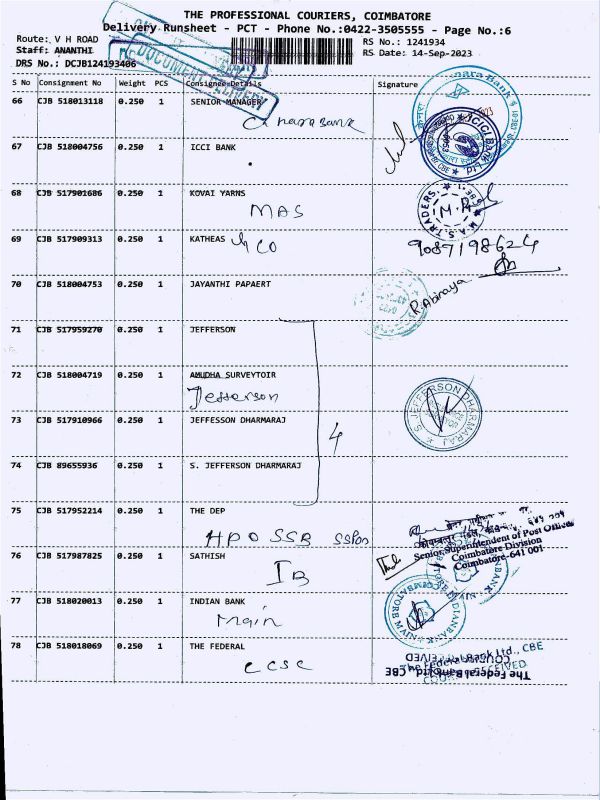 THE PROFESSIONAL COURIERS, COIMBATORE
Delivery Runsheet - PCT - Phone No.:0422-3505555 - Page No.:6
Route: V H ROAD
RS No.: 1241934
Staff: ANANTHI
RS Date: 14-Sep-2023
DRS No.: DCJB124193406
DOCUMENT DELIVERY
S No Consignment No Weight PCS Consignee Details Signature
66 CJB 518013118 0.250 1 SENIOR MANAGER
Canara Bank
67 CJB 518004756 0.250 1 ICCI BANK
ICICI Bank Ltd
68 CJB 517901686 0.250 1 KOVAI YARNS
MAS
M.A.S. TRADERS
69 CJB 517909313 0.250 1 KATHEAS
9087198624
70 CJB 518004753 0.250 1 JAYANTHI PAPAERT
R. Abinaya
71 CJB 517959270 0.250 1 JEFFERSON
72 CJB 518004719 0.250 1 AMUDHA SURVEYTOIR
Jefferson
S. JEFFERSON DHARMARAJ
73 CJB 517910966 0.250 1 JEFFESSON DHARMARAJ
4
74 CJB 89655936 0.250 1 S. JEFFERSON DHARMARAJ
75 CJB 517952214 0.250 1 THE DEP
HPO SSB SSPos
Senior Superintendent of Post Offices
Coimbatore Division
Coimbatore-641 001
76 CJB 517987825 0.250 1 SATHISH
IB
77 CJB 518020013 0.250 1 INDIAN BANK
Main
78 CJB 518018069 0.250 1 THE FEDERAL
ccsc
The Federal Bank Ltd., CBE
COURIER RECEIVED
The Federal Bank Ltd., CBE